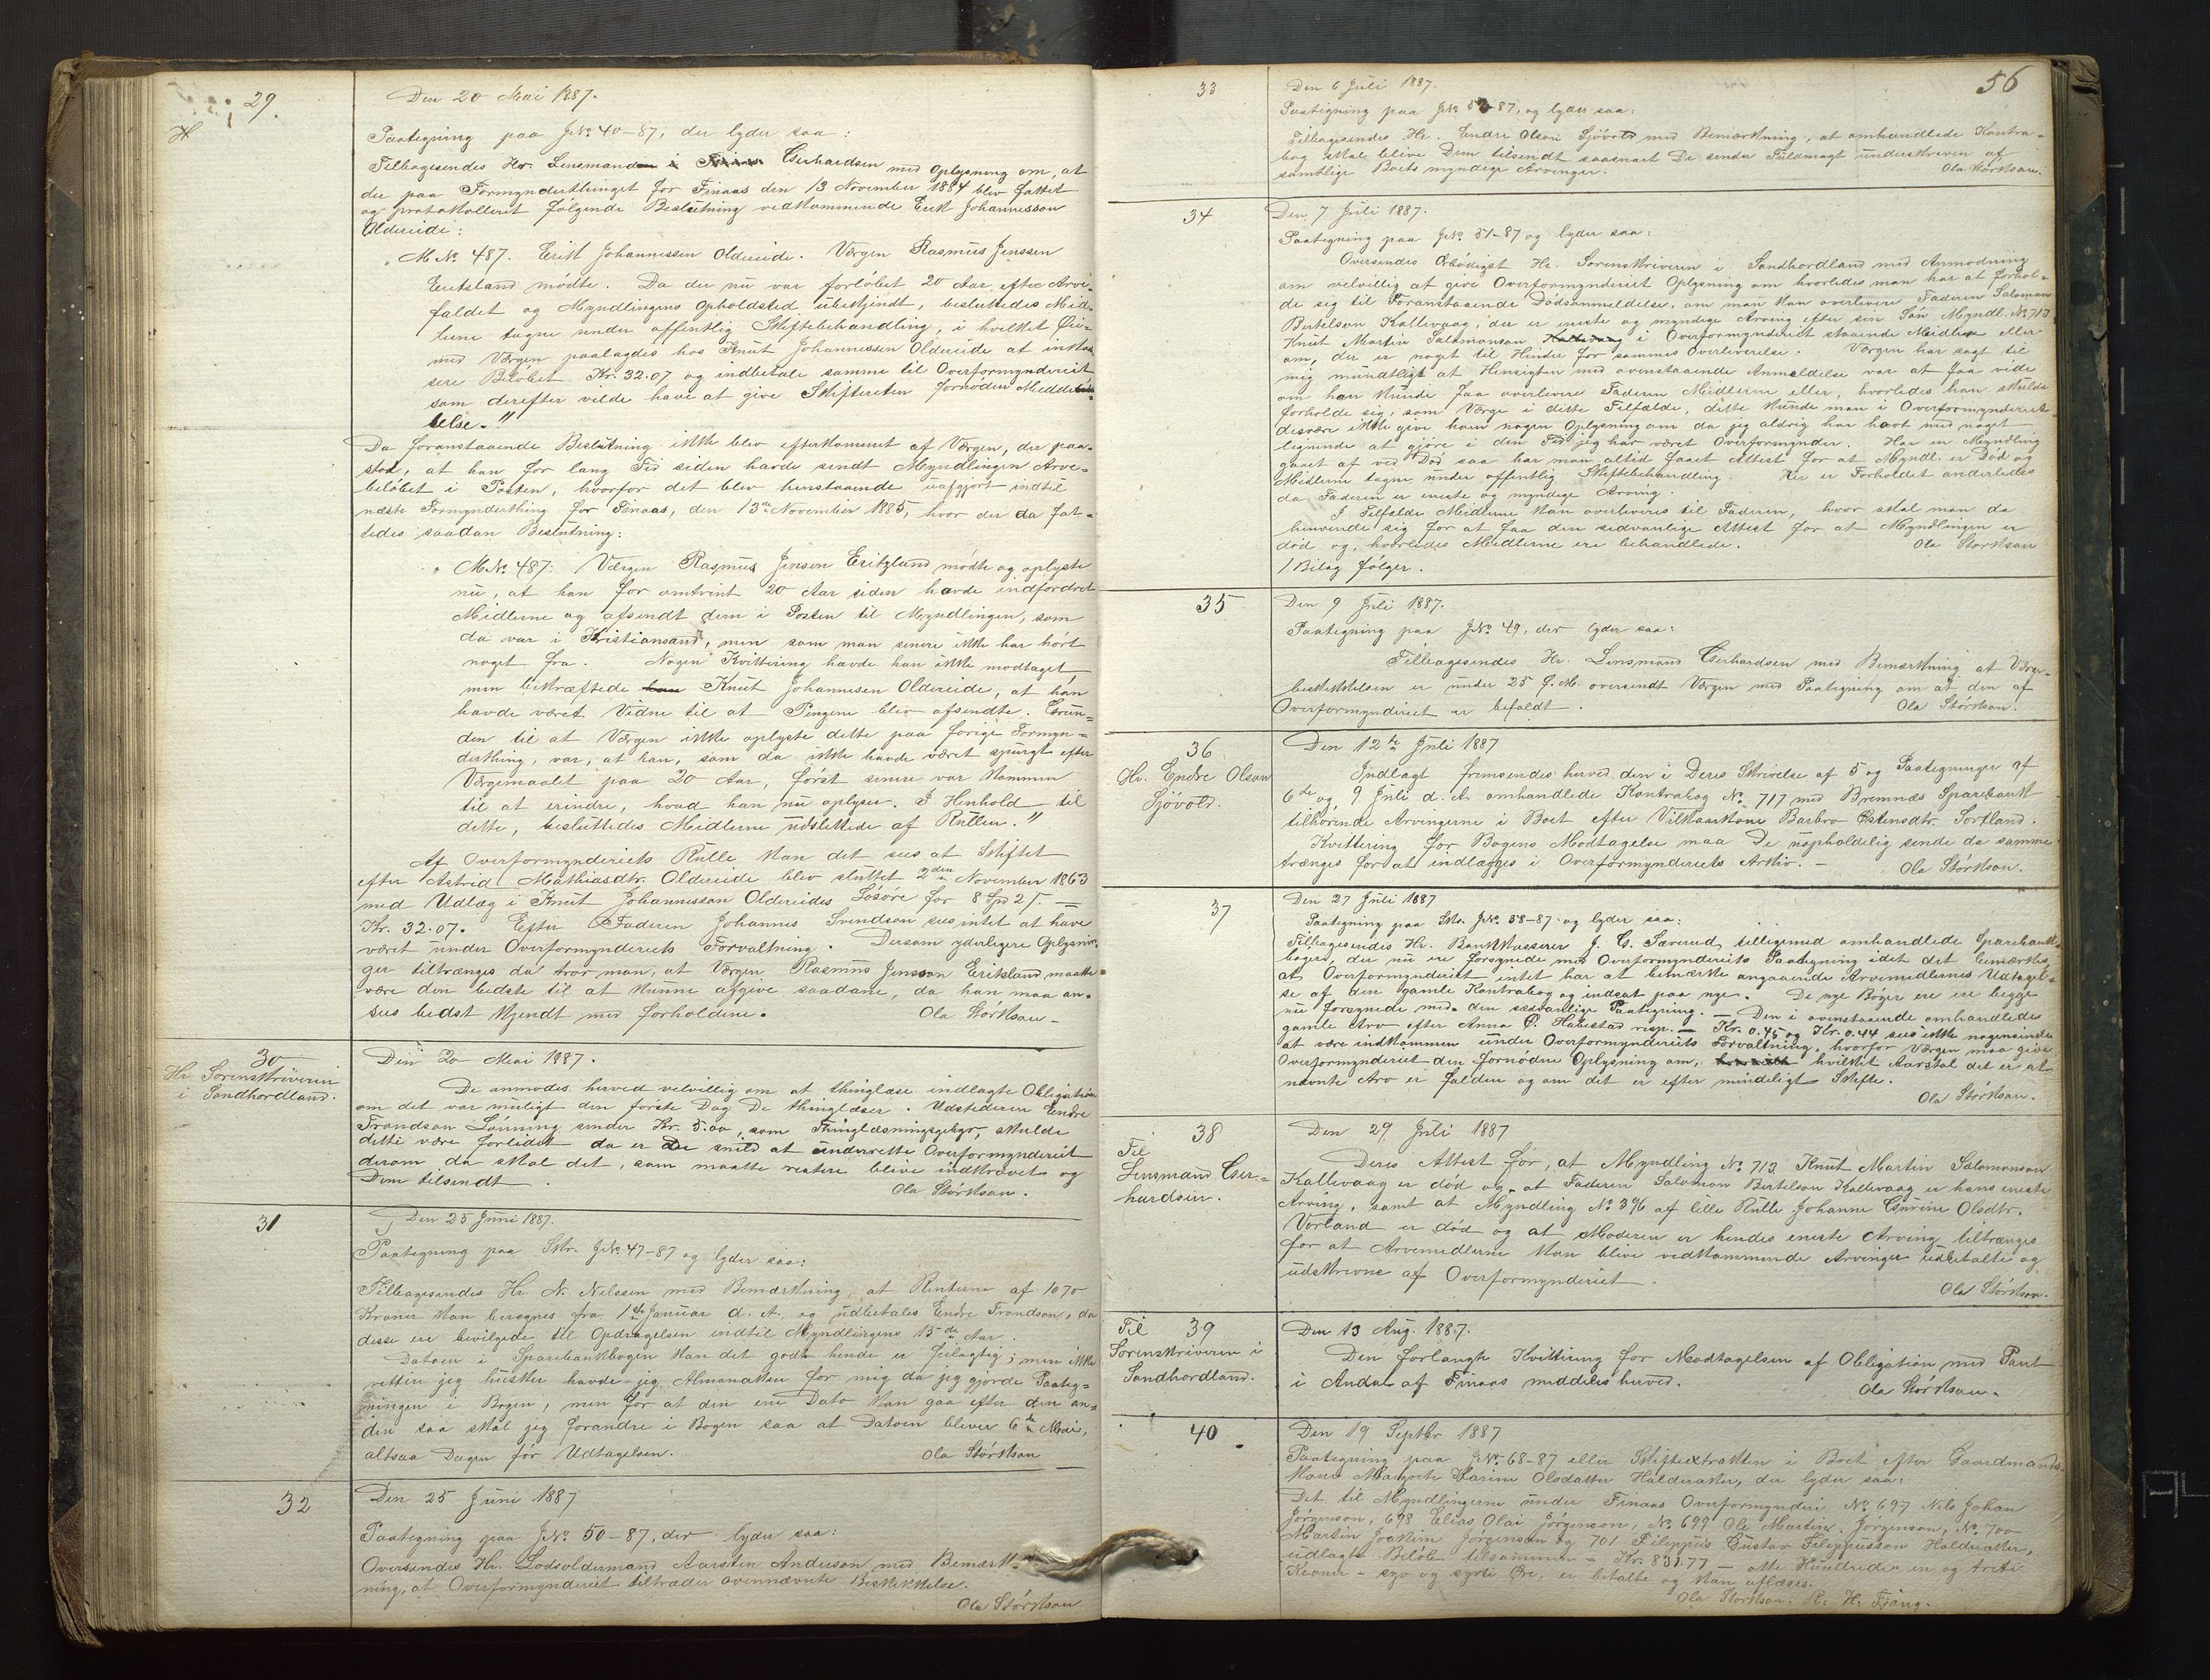 29.
H
Den 20 Mai 1887.
Paategning paa J№ 40-87, der lyder saa:
Tilbagesendes Hr. Lensmand Gerhardsen med Oplysning om, at
der paa Formynderthinget for Finaas den 13 November 1884 blev fattet
og protokolleret følgende Beslutning vedkommende Erik Johannesson
Oldereide:
"M№ 487. Erik Johannessen Oldereide. Værgen Rasmus Jenssen
Eritsland mødte. Da der nu var forløbet 20 Aar efter Arve-
faldet og Myndlingens Opholdsted ubekjendt, besluttedes Mid-
lerne tagne under offentlig Skiftebehandling, i hvilket Øie-
med Værgen paalagdes hos Knut Johannessen Oldereide at inkas-
sere Beløbet Kr. 32.07 og indbetale samme til Overformynderiet
som derefter vilde have at give Skifteretten fornøden Medde-
lelse."
Da foranstaaende Beslutning ikke blev efterkommet af Værgen, der paa-
stod, at han for lang Tid siden havde sendt Myndlingen Arve-
beløbet i Posten, hvorfor det blev henstaaende uafgjort indtil
næste Formynderthing for Finaas, den 13de November 1885, hvor der da fat-
tedes saadan Beslutning:
"M№ 487: Værgen Rasmus Jenson Eritsland mødte og oplyste
nu, at han for omtrint 20 Aar siden havde indfordret
Midlerne og afsendt dem i Posten til Myndlingen, som
da var i Kristiansand, men som man senere ikke har hørt
noget fra. Nogen Kvittering havde han ikke modtaget
men bekræftede Knut Johannesen Oldereide, at han
havde været Vidne til at Pengene blev afsendte. Grun-
den til at Værgen ikke oplyste dette paa forige Formyn-
derthing, var, at han, som da ikke havde været spurgt efter
Værgemaalet paa 20 Aar, først senere var kommen
til at erindre, hvad han nu oplyser. I Henhold til
dette, besluttedes Midlerne udslettede af Rullen."
Af Overformynderiets Rulle kan det sees at Skiftet
efter Astrid Mathiasdtr. Oldereide blev sluttet 2den November 1863
med Udlæg i Knut Johannesson Oldereides Løsøre for 8 Spd 2 -
Kr. 32.07. Efter Faderen Johannes Svendson sees intet at have
været under Overformynderiets Forvaltning. Dersom yderligere Oplysnin-
ger tiltrænges da tror man, at Værgen Rasmus Jensson Eriksland maatte
være den bedste til at kunne afgive saadane, da han maa an-
sees bedst kjendt med forholdene.
Ola Størkson
30
Hr. Sorenskriveren
i Søndhordland.
Den 20 Mai 1887.
De anmodes herved velvillig om at thinglæse indlagte Obligation
om det var muligt den første Dag De thinglæser. Udstederen Endre
Trondson Lønning sender Kr. 5.00, som Thinglæsningsgebyr, skulde
dette være forlidet da er De snild at underrette Overformynderiet
derom da skal det, som maatte restere blive indkrævet og
Dem tilsendt.
Ola Størkson.
31
Den 25 Juni 1887.
Paategning paa Skr. J№ 47-87 og lyder saa:
Tilbagesendes Hr. N. Nilssen med Bemærkning, at Renterne af 1070
Kroner kan beregnes fra 1ste Januar d. A. og udbetales Endre Trondson, da
disse ere bevilgede til Opdragelsen indtil Myndlingens 15de Aar.
Datoen i Sparebankbogen kan det godt hende er feilagtig; men ikke
rettere jeg husker havde jeg Almanakken for mig da jeg gjorde Paateg-
ningen i Bogen, men for at den ene Dato kan gaa efter den an-
den saa skal jeg forandre i Bogen saa at Datoen bliver 6te Mai,
altsaa Dagen før Udtagelsen.
Ola Størkson
32
Den 25 Juni 1887
Paategning paa J№ 50-87, der lyder saa:
Oversendes Hr. Lodsoldermand Aarsten Anderson med Bemærk-
ning, at Overformynderiet tiltræder ovennævnte Beskikkelse.
Ola Størkson
56
33
Den 6 Juli 1887.
Paategning paa J№ 52-87, og lyder saa:
Tilbagesendes Hr. Endre Olson Sjøvold med Bemærkning, at omhandlede Kontra-
bog skal blive Dem tilsendt saasnart De sender Fuldmagt underskreven af
samtlige Boets myndige Arvinger.
Ola Størkson.
34
Den 7 Juli 1887.
Paategning paa J№ 51-87 og lyder saa:
Oversendes Ærbødigst Hr. Sorenskriveren i Søndhordland med Anmodning
om velvillig at give Overformynderiet Oplysning om hvorledes man har at forhol-
de sig til Foranstaaende Dødsanmeldelse, om man kan overlevere Faderen Salomon
Bertelson Kallevaag, der er eneste og myndige Arving efter sin Søn Myndl. № 712
Knut Martin Salomonson i Overformynderiet staaende Midler eller
om, der er noget til Hinder for sammes Overleverelse. Værgen har sagt til
mig mundtligt at Hensigten med ovenstaaende Anmeldelse var at faa vide
om han kunde faa overlevere Faderen Midlerne eller, hvorledes han skulde
forholde sig, som Værge i dette Tilfælde, dette kunde man i Overformynderiet
desvære ikke give ham nogen Oplysning om da jeg aldrig har havt med noget
lignende at gjøre i den Tid jeg har været Overformynder. Har en Myndling
gaaet af ved Død saa har man altid faaet Attest for at Myndl. er Død og
Midlerne tagne under offentlig Skiftebehandling. Her er Forholdet anderledes
da Faderen er eneste og myndige Arving.
I Tilfælde Midlerne kan overleveres til Faderen, hvor skal man da
henvende sig for at faa den sedvanlige Attest for at Myndlingen er
død og, hvorledes Midlerne ere behandlede.
Ola Størkson
1 Bilag følger.
35
Den 9 Juli 1887.
Paategning paa J№ 49, der lyder saa:
Tilbagesendes Hr. Lensmand Gerhardsen med Bemærkning at Værge-
beskikkelsen er under 25 f. M. oversendt Værgen med Paategning om at den af
Overformynderiet er befaldt.
Ola Størkson.
36
Hr. Endre Olson
Sjøvold.
Den 12te Juli 1887
Indlagt fremsendes herved den i Deres Skrivelse af 5 og Paategninger af
6te og 9 Juli d. A. omhandlede Kontrabog № 717 med Bremnæs Sparebank
tilhørende Arvingerne i Boet efter Vilkaarskone Barbro Østensdtr. Sortland.
Kvittering for Bogens Modtagelse maa De uopholdelig sende da samme
trænges for at indlægges i Overformynderiets Arkiv. -
Ola Størkson.
37
Den 27 Juli 1887
Paategning paa Skr. J№ 58-87 og lyder saa:
Tilbagesendes Hr. Bankkasserer J. G. Sæverud, tilligemed omhandlede Sparebank-
bøger, der nu ere forsynede med Overformynderiets Paategning idet det bemærkes,
at Overformynderiet intet har at bemærke angaaende Arvemidlernes Udtagel-
se af den gamle Kontrabog og indsat paa nye. De nye Bøger ere ere begge
nu forsynede med den sædvanlige Paategning. - Den i ovenstaaende omhandlede
gamle Arv efter Anna P. Habestad resp. - Kr. 0.45 og Kr. 0.44 sees ikke nogensinde
at være indkommen under Overformynderiets Forvaltning, hvorfor Værgen maa give
Overformynderiet den fornødne Oplysning om, hvilket Aarstal det er at
nævnte Arv er falden og om det er efter mindeligt Skifte.
Ola Størkson.
38
Til
Lensmand Ger-
hardsen.
Den 29 Juli 1887
Deres Attest for, at Myndling № 712 Knut Martin Salomonson
Kallevaag er død og at Faderen Salomon Bertelson Kallevaag er hans eneste
Arving, samt at Myndling № 396 af lille Rulle Johanne Gurine Olsdtr.
Vorland er død og at Moderen er hendes eneste Arving tiltrænges
for at Arvemidlerne kan blive vedkommende Arvinger udbetalte og
udskrevne af Overformynderiet.
Ola Størkson.
Til 39
Sorenskriveren i
Søndhordland.
Den 13 Aug. 1887.
Den forlangte Kvittering for Modtagelsen af Obligation med Pant
i Andal af Finaas meddeles herved.
Ola Størkson.
40
Den 19 Septbr 1887
Paategning paa J№ 68-87 eller Skifteextrakten i Boet efter Gaardmands-
kone Margrete Karine Olsdatter Halderaker, der lyder saa:
Det til Myndlingerne under Finaas Overformynderi № 697 Nils Johan
Jørgenson, 698 Elias Olai Jørgenson, № 699 Ole Martin Jørgenson, № 700
Martin Joakim Jørgenson og 701 Filippus Gustav Filippusson Halderaker,
udlagte Beløb tilsammen - Kr. 831.77 - otte Hundrede en og treti
Kroner - syv og sytti Øre, er betalte og kan aflæses.
Ola Størkson. R. H. Tjong.